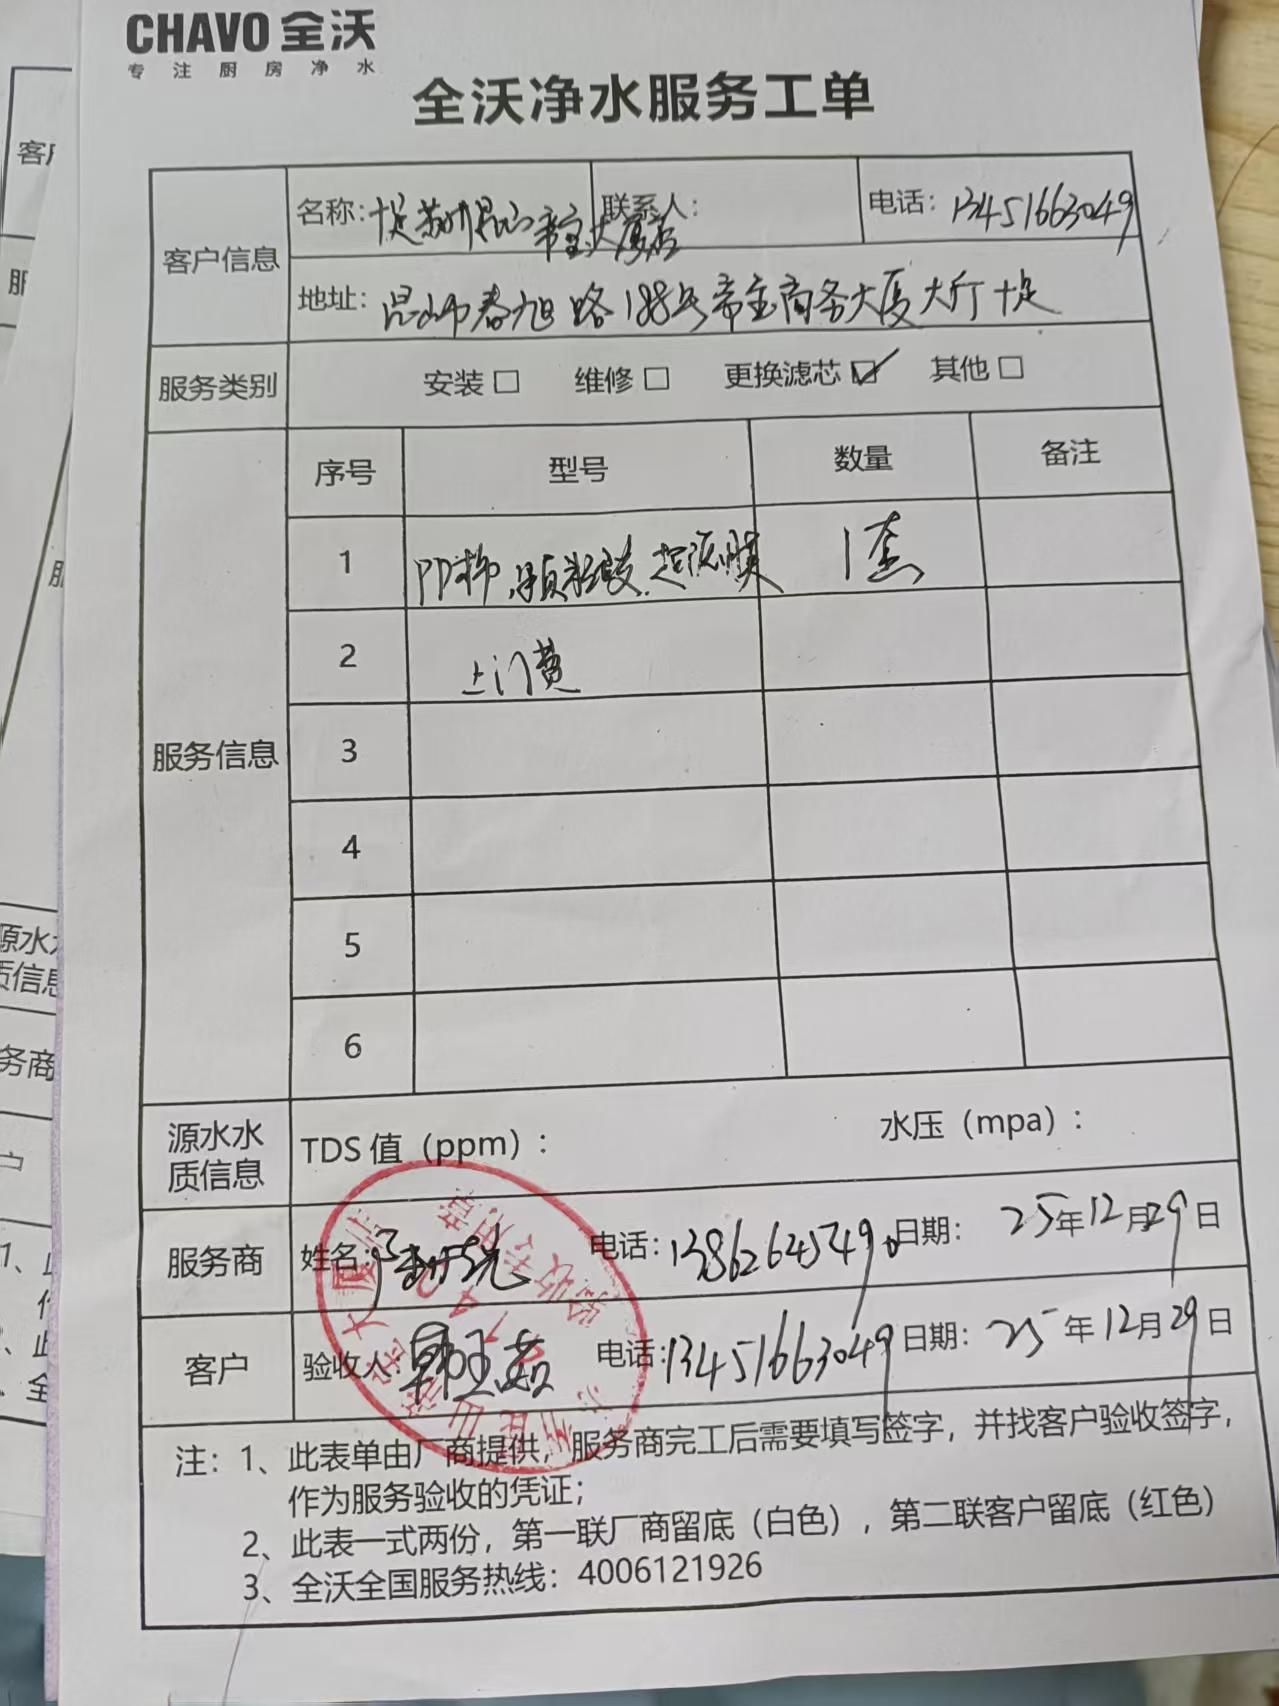 CHAVO 全沃
专注厨房净水
全沃净水服务工单
客户信息
名称：十足苏州昆山帝宝大厦店
联系人：
电话：13451663049
地址：昆山市春旭路188号帝宝商务大厦大厅十足
服务类别 安装□ 维修□ 更换滤芯☑ 其他□
服务信息
序号 型号 数量 备注
1 PP棉、颗粒炭、超滤膜 1套
2 上门费
3
4
5
6
源水水质信息
TDS 值（ppm）： 水压（mpa）：
服务商 姓名： 电话：13862645749 日期：25年12月29日
客户 验收人： 电话：13451663049 日期：25年12月29日
验收专用章
注：1、此表单由厂商提供，服务商完工后需要填写签字，并找客户验收签字，
作为服务验收的凭证；
2、此表一式两份，第一联厂商留底（白色），第二联客户留底（红色）
3、全沃全国服务热线：4006121926